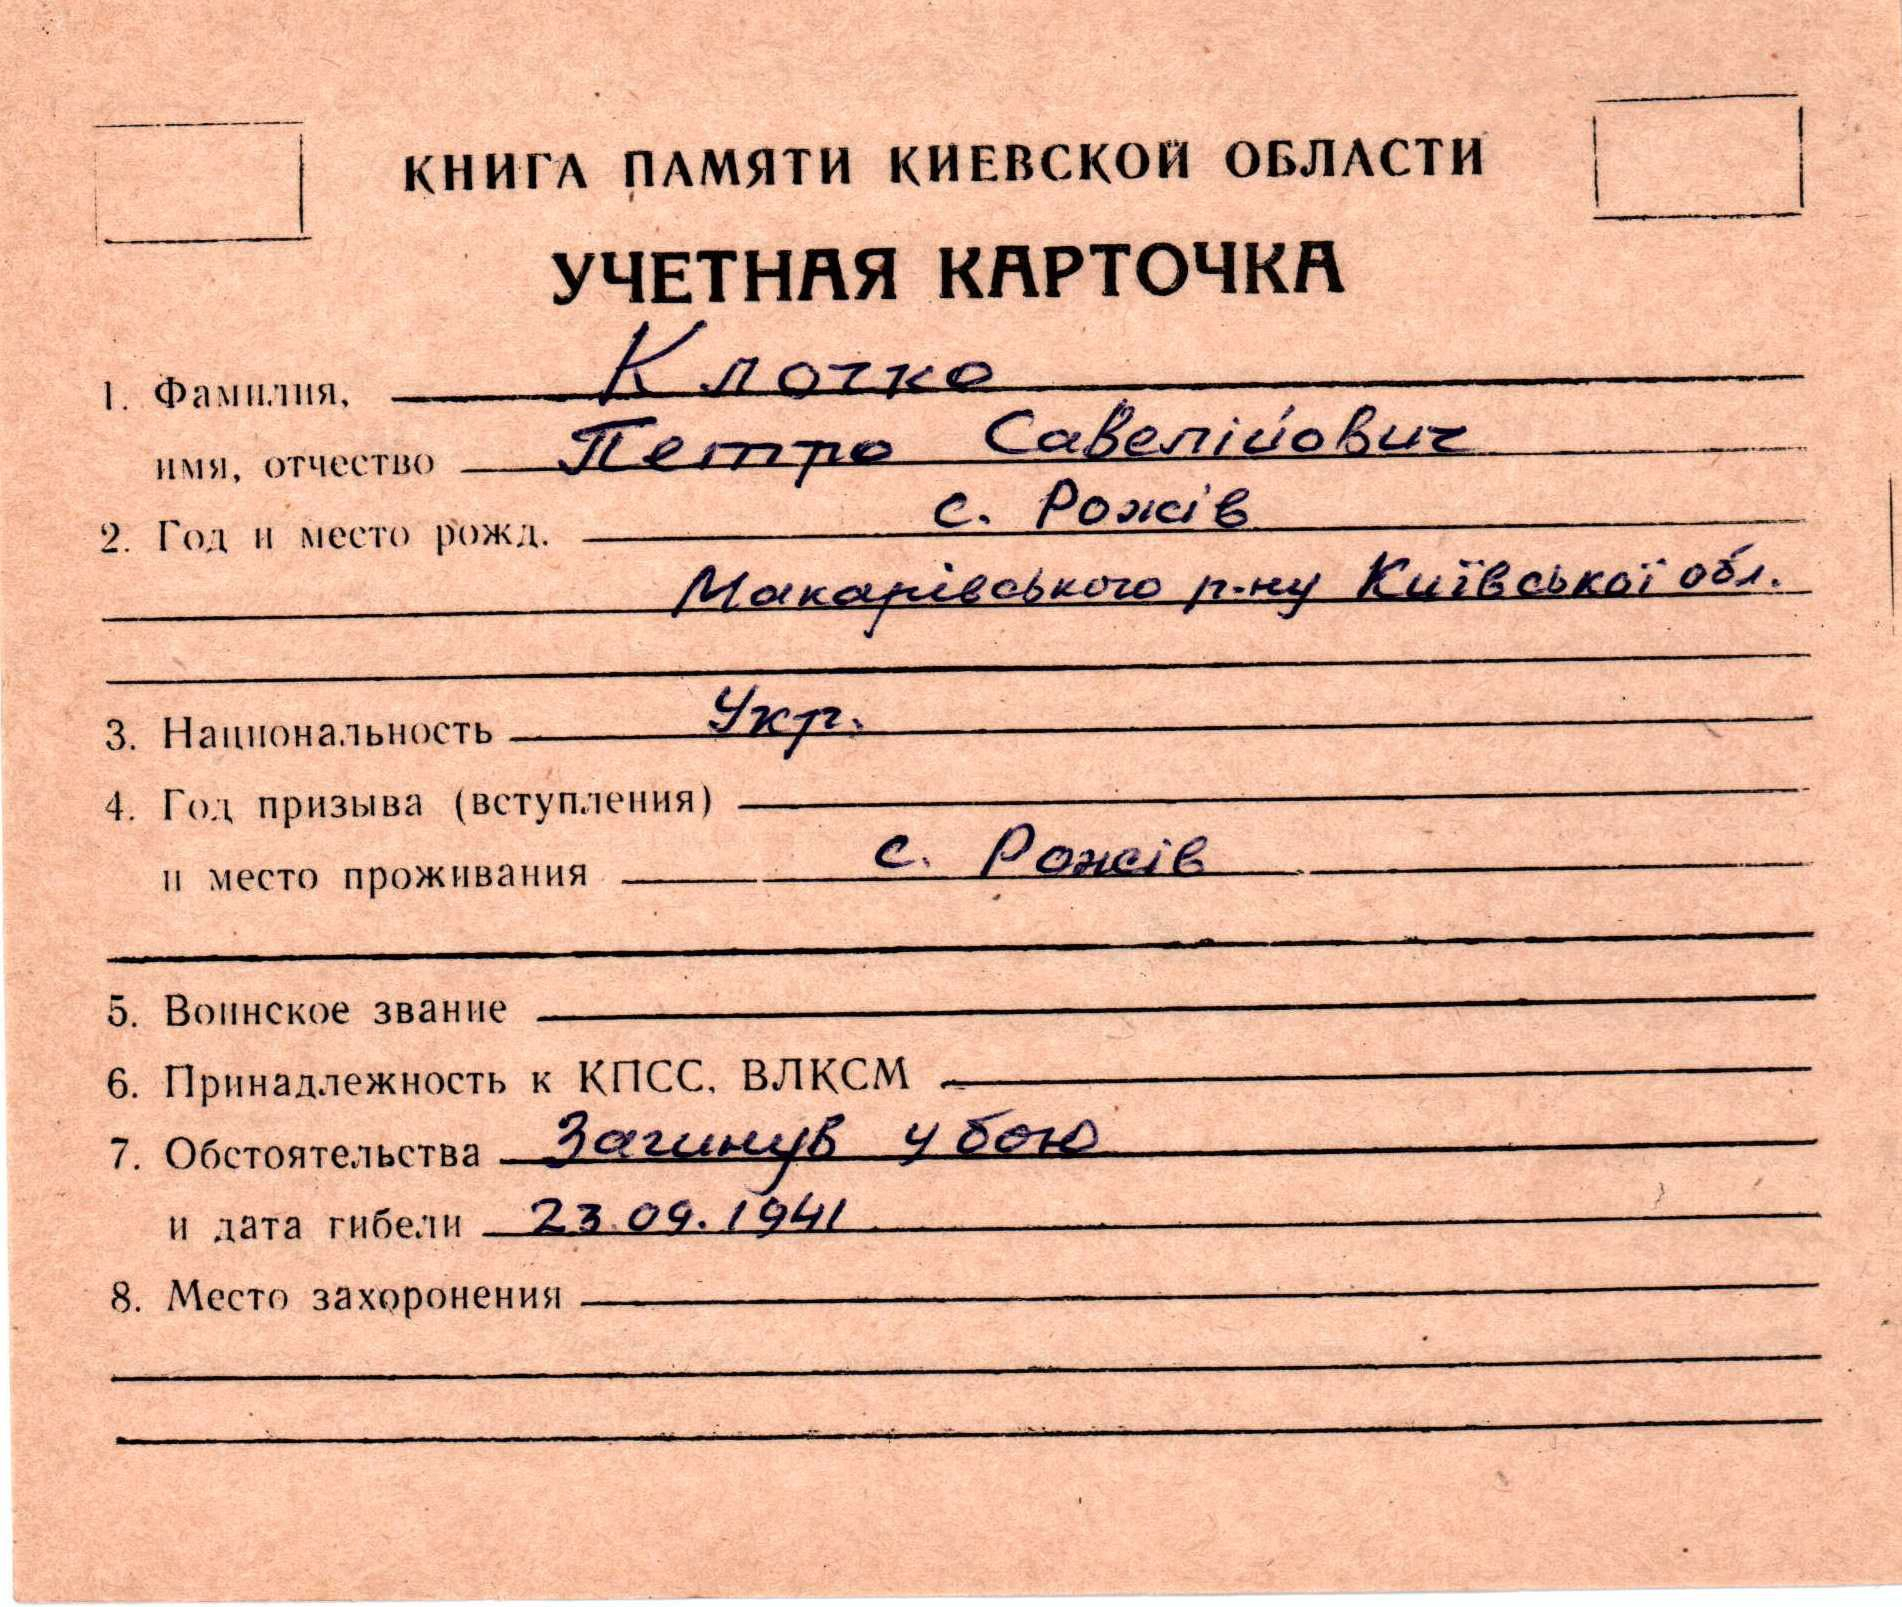 КНИГА ПАМЯТИ КИЕВСКОЙ ОБЛАСТИ
УЧЕТНАЯ КАРТОЧКА
1. Фамилия, Клочко
имя, отчество Петро Савелійович
2. Год и место рожд. с. Рожів
Макарівського р-ну Київської обл.
3. Национальность Укр.
4. Год призыва (вступления)
и место проживания с. Рожів
5. Воинское звание
6. Принадлежность к КПСС, ВЛКСМ
7. Обстоятельства Загинув у бою
и дата гибели 23.09.1941
8. Место захоронения